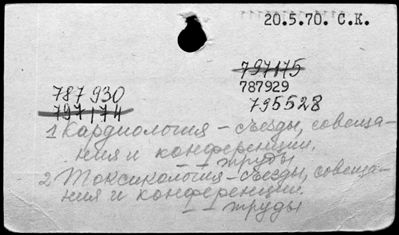 20.5.70. С.К.
797175
787930
787929
797174
795528
1 Кардиология – съезды, совеща-
ния и конференции.
– – труды
2 Токсикология – съезды, совеща-
ния и конференции.
– – труды